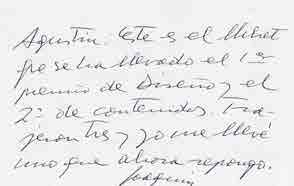 Agustín. Este es el llibret
que se ha llevado el 1er
premio de Diseño y el
2º de contenidos. Tra-
jeron tres y yo me llevé
uno que ahora repongo.
Joaquín